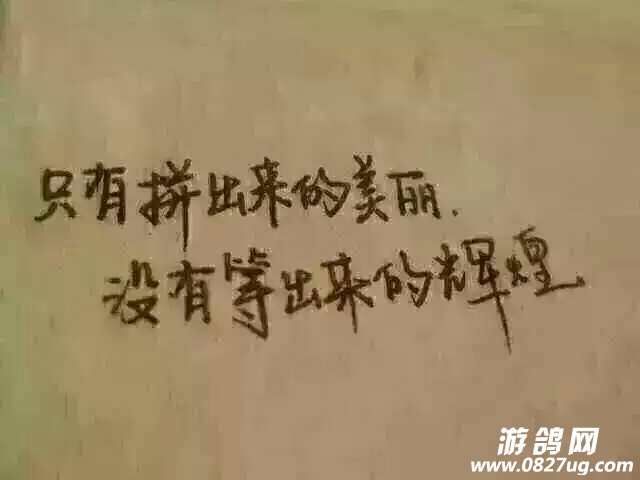 只有拼出来的美丽.
没有等出来的辉煌
游鸽网
www.0827ug.com